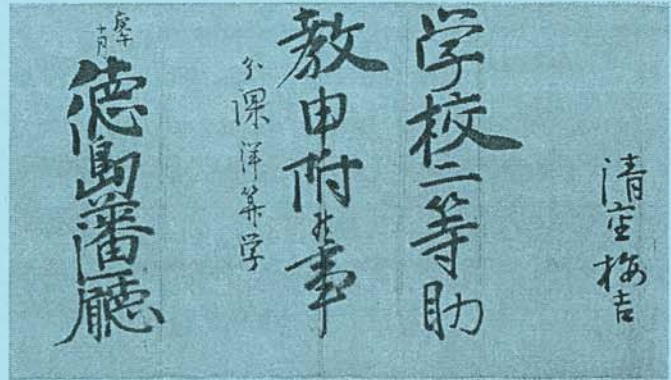 清室梅吉
学校二等助
教申附候事
分課洋算学
庚午
十月
徳島藩廳